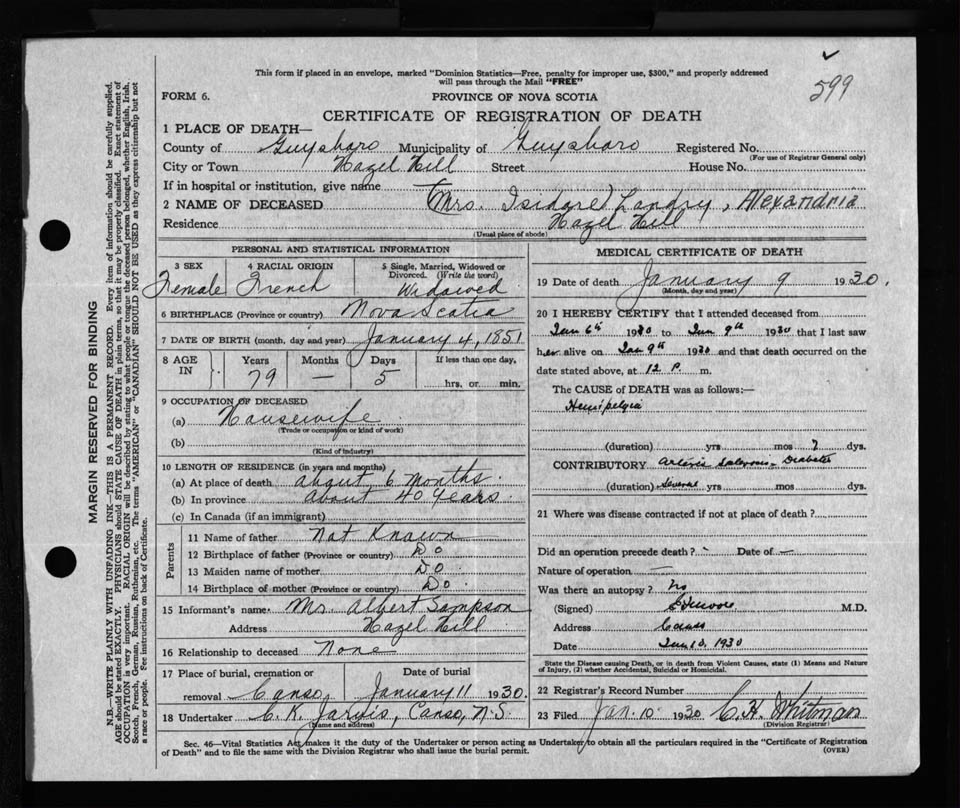 599
This form if placed in an envelope, marked "Dominion Statistics—Free, penalty for improper use, $300," and properly addressed
will pass through the Mail "FREE"
FORM 6.
PROVINCE OF NOVA SCOTIA
CERTIFICATE OF REGISTRATION OF DEATH
1 PLACE OF DEATH—
County of Guysboro Municipality of Guysboro Registered No.
(For use of Registrar General only)
City or Town Hazel Hill Street House No.
If in hospital or institution, give name
2 NAME OF DECEASED (Mrs. Isidore) Landry, Alexandria
Residence Hazel Hill
(Usual place of abode)
PERSONAL AND STATISTICAL INFORMATION
3 SEX 4 RACIAL ORIGIN 5 Single, Married, Widowed or
Divorced. (Write the word)
Female French Widowed
6 BIRTHPLACE (Province or country) Nova Scotia
7 DATE OF BIRTH (month, day and year) January 4, 1851
8 AGE IN Years Months Days If less than one day,
79 — 5 hrs. or min.
9 OCCUPATION OF DECEASED
(a) Housewife
(Trade or occupation or kind of work)
(b)
(Kind of industry)
10 LENGTH OF RESIDENCE (in years and months)
(a) At place of death about 6 months
(b) In province about 40 years
(c) In Canada (if an immigrant)
Parents
11 Name of father Not Known
12 Birthplace of father (Province or country) Do
13 Maiden name of mother Do
14 Birthplace of mother (Province or country) Do
15 Informant's name Mr. Albert Sampson
Address Hazel Hill
16 Relationship to deceased None
17 Place of burial, cremation or Date of burial
removal Canso, January 11 1930.
18 Undertaker C. K. Jarvis, Canso, N.S.
(Name and address)
MEDICAL CERTIFICATE OF DEATH
19 Date of death January 9 1930.
(Month, day and year)
20 I HEREBY CERTIFY that I attended deceased from
Jan 6th 1930 to Jan 9th 1930 that I last saw
her alive on Jan 9th 1930 and that death occurred on the
date stated above, at 12 P. m.
The CAUSE of DEATH was as follows:—
Hemiplegia
(duration) yrs mos 7 dys.
CONTRIBUTORY Arterio Sclerosis - Diabetes
(duration) Several yrs mos dys.
21 Where was disease contracted if not at place of death?
Did an operation precede death? - Date of —
Nature of operation —
Was there an autopsy? No
(Signed) M.D.
Address Canso
Date Jan 10. 1930
State the Disease causing Death, or in death from Violent Causes, state (1) Means and Nature
of Injury, (2) whether Accidental, Suicidal or Homicidal.
22 Registrar's Record Number
23 Filed Jan. 10 1930 C. H. Whitman
(Division Registrar)
Sec. 46—Vital Statistics Act makes it the duty of the Undertaker or person acting as Undertaker to obtain all the particulars required in the "Certificate of Registration
of Death" and to file the same with the Division Registrar who shall issue the burial permit.
(OVER)
MARGIN RESERVED FOR BINDING
N.B.—WRITE PLAINLY WITH UNFADING INK—THIS IS A PERMANENT RECORD. Every item of information should be carefully supplied.
AGE should be stated EXACTLY. PHYSICIANS should STATE CAUSE OF DEATH in plain terms, so that it may be properly classified. Exact statement of
OCCUPATION is very important. RACIAL ORIGIN will be described by stating to what people or tongue the deceased person belonged, whether English, Irish,
Scotch, French, German, Russian, Ruthenian, etc. The terms "AMERICAN" or "CANADIAN" SHOULD NOT BE USED as they express citizenship but not
a race or people. See instructions on back of Certificate.